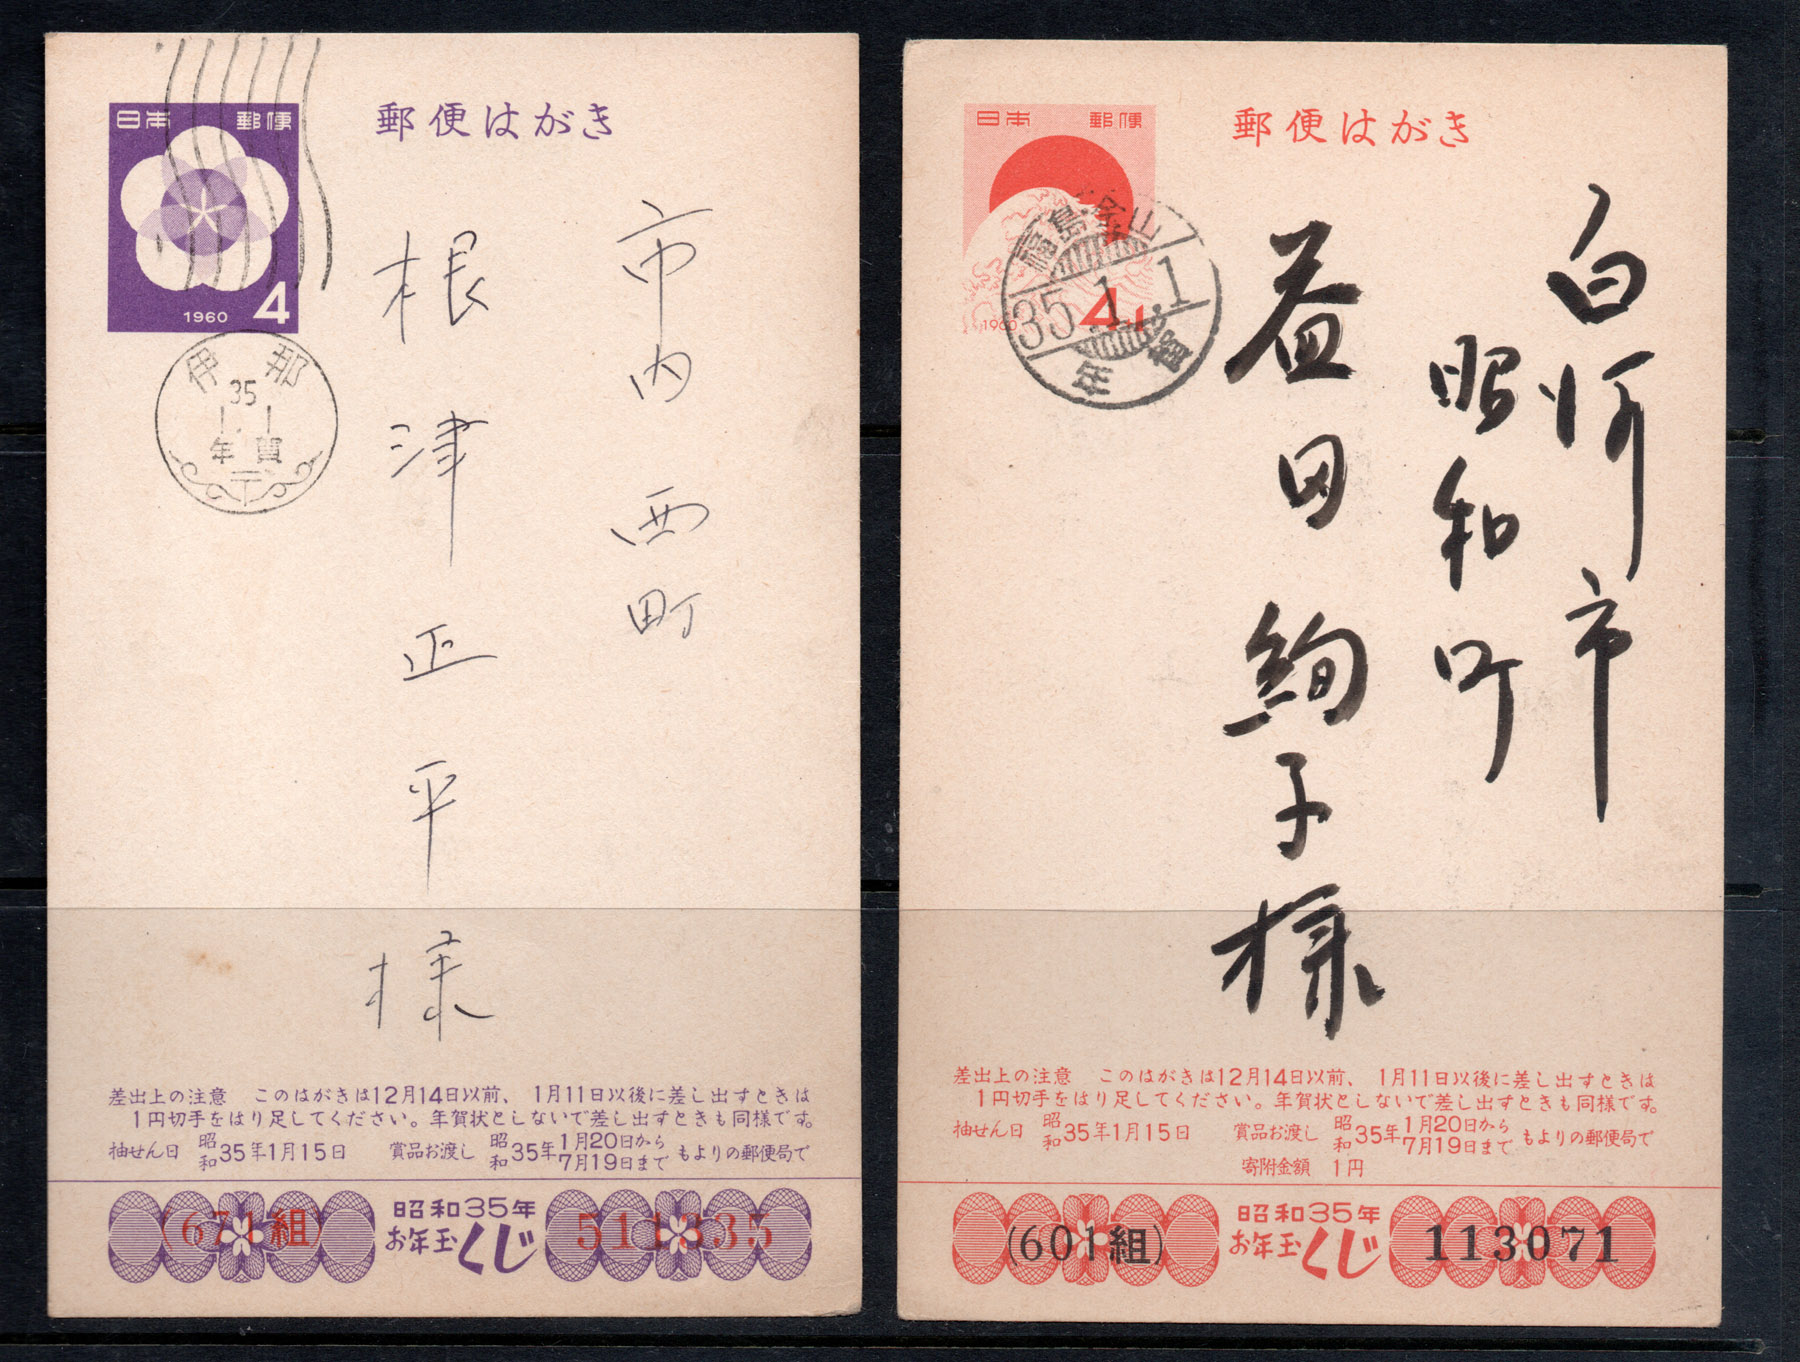 日本 郵便
4
1960
郵便はがき
伊那
35
1.1
年賀
市内 西町
根津正平様
差出上の注意 このはがきは12月14日以前、1月11日以後に差し出すときは
1円切手をはり足してください。年賀状としないで差し出すときも同様です。
抽せん日 昭和35年1月15日 賞品お渡し 昭和35年1月20日から7月19日まで もよりの郵便局で
(671組)
昭和35年
お年玉くじ
511335
日本 郵便
1960
郵便はがき
福島・
山
35.1.1
年賀
白河市
昭和町
益田絢子様
差出上の注意 このはがきは12月14日以前、1月11日以後に差し出すときは
1円切手をはり足してください。年賀状としないで差し出すときも同様です。
抽せん日 昭和35年1月15日 賞品お渡し 昭和35年1月20日から7月19日まで もよりの郵便局で
寄附金額 1円
(601組)
昭和35年
お年玉くじ
113071